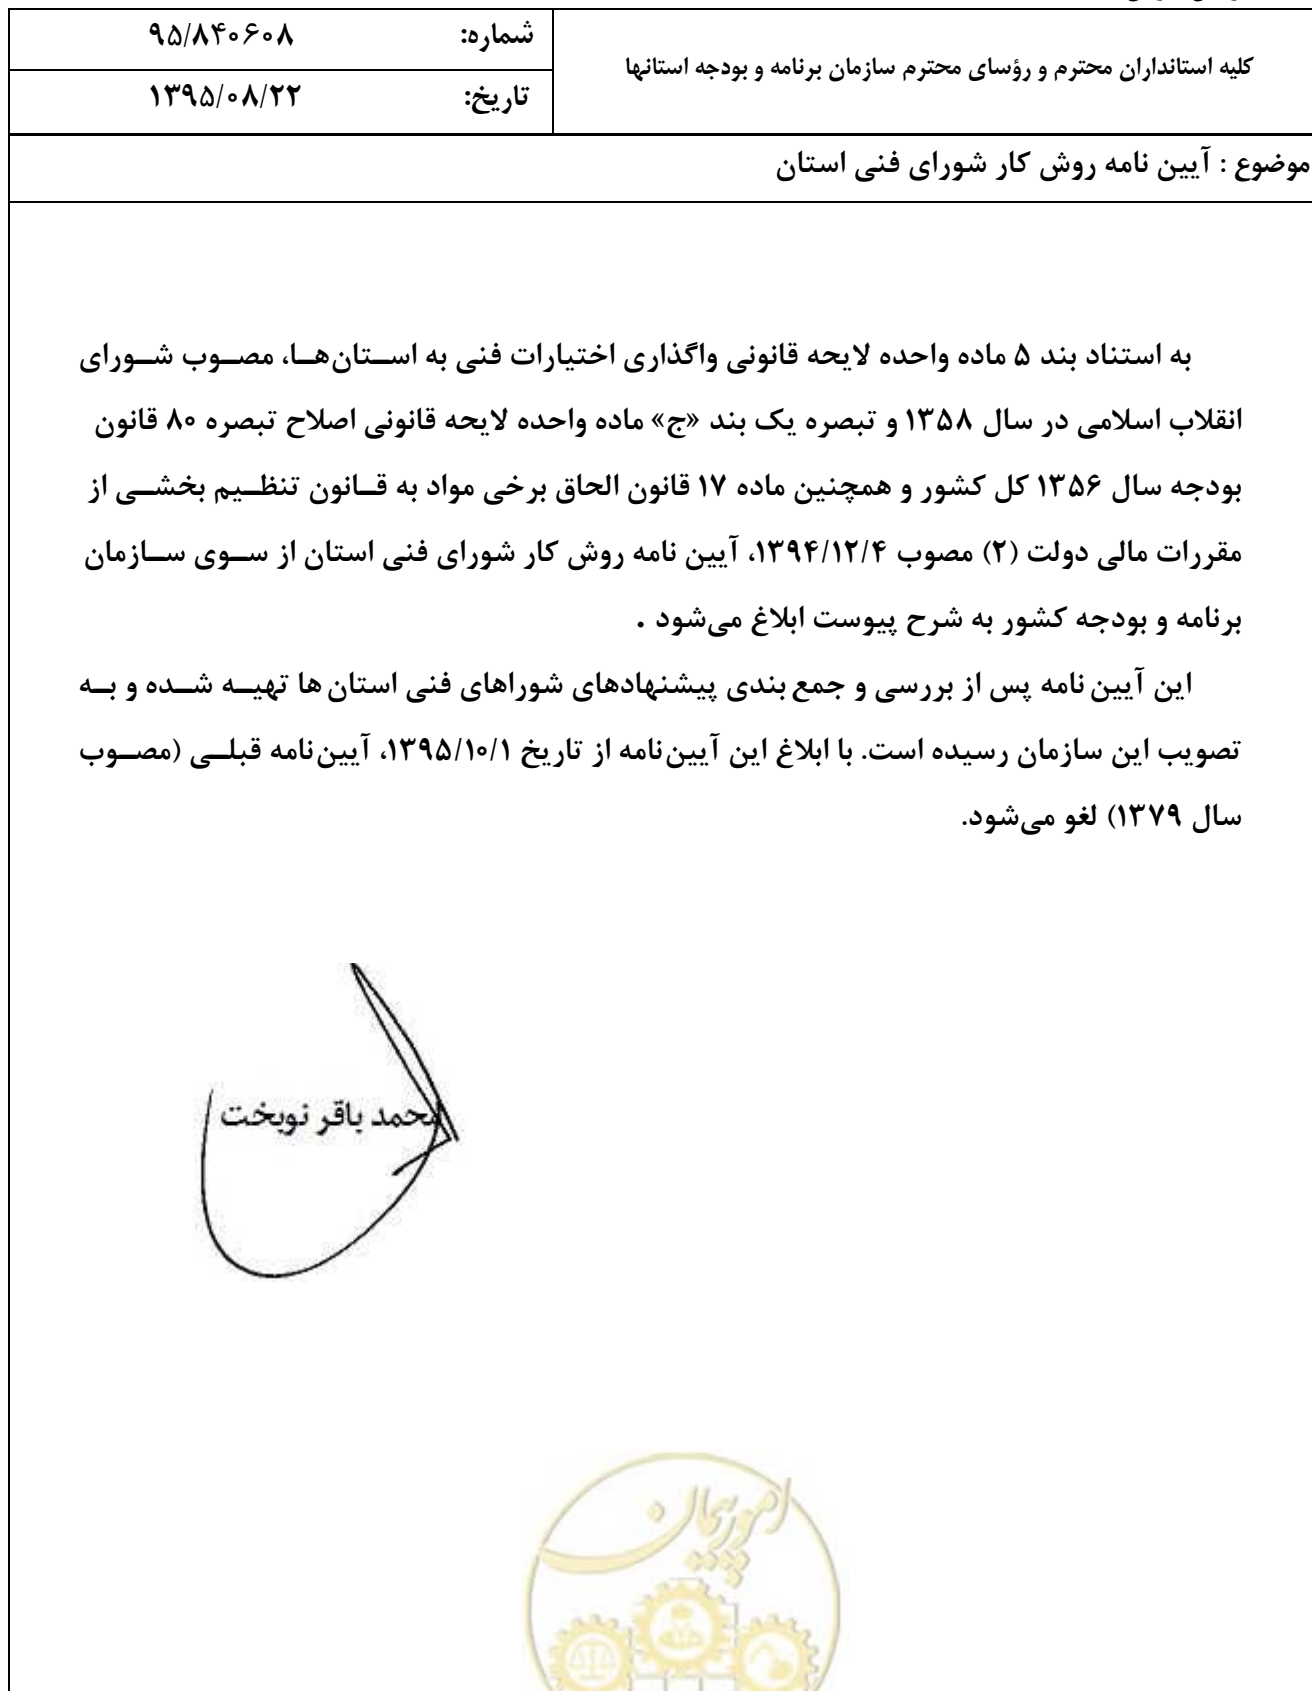 کلیه استانداران محترم و رؤسای محترم سازمان برنامه و بودجه استانها
شماره: ۹۵/۸۴۰۶۰۸
تاریخ: ۱۳۹۵/۰۸/۲۲
موضوع : آیین نامه روش کار شورای فنی استان
به استناد بند ۵ ماده واحده لایحه قانونی واگذاری اختیارات فنی به اســتان‌هــا، مصــوب شــورای
انقلاب اسلامی در سال ۱۳۵۸ و تبصره یک بند «ج» ماده واحده لایحه قانونی اصلاح تبصره ۸۰ قانون
بودجه سال ۱۳۵۶ کل کشور و همچنین ماده ۱۷ قانون الحاق برخی مواد به قــانون تنظــیم بخشــی از
مقررات مالی دولت (۲) مصوب ۱۳۹۴/۱۲/۴، آیین نامه روش کار شورای فنی استان از ســوی ســازمان
برنامه و بودجه کشور به شرح پیوست ابلاغ می‌شود .
این آیین نامه پس از بررسی و جمع بندی پیشنهادهای شوراهای فنی استان ها تهیــه شــده و بــه
تصویب این سازمان رسیده است. با ابلاغ این آیین‌نامه از تاریخ ۱۳۹۵/۱۰/۱، آیین‌نامه قبلــی (مصــوب
سال ۱۳۷۹) لغو می‌شود.
محمد باقر نوبخت
امور پیمان